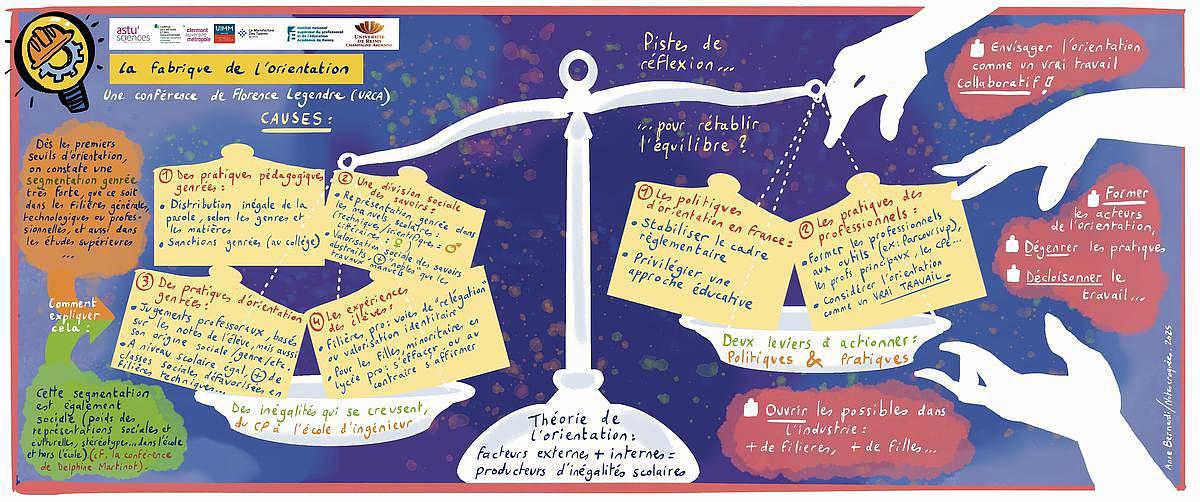 astu'
sciences
clermont
auvergne
métropole
UIMM
La Manufacture
Des Talents
Institut national
supérieur du professorat
et de l'éducation
Académie de Reims
UNIVERSITÉ
DE REIMS
CHAMPAGNE-ARDENNE
La Fabrique de l'orientation
Une conférence de Florence Legendre (URCA)
CAUSES :
Dès les premiers
seuils d'orientation,
on constate une
segmentation genrée
très forte, que ce soit
dans les filières générales,
technologiques ou profes-
sionnelles, et aussi dans
les études supérieures
...
Comment
expliquer
cela :
Cette segmentation
est également
sociale (poids des
représentations sociales et
culturelles, stéréotypes... dans l'école
et hors l'école). (cf. la conférence
de Delphine Martinot).
① Des pratiques pédagogiques
genrées :
• Distribution inégale de la
parole, selon les genres et
les matières
• Sanctions genrées (au collège)
② Une division sociale
des savoirs :
• Représentation genrée dans
les manuels scolaires :
(Technique/scientifiques = ♂
Littéraire : ♀
• Valorisation sociale des savoirs
abstraits, + nobles que les
travaux manuels
③ Des pratiques d'orientation
genrées :
• Jugements professoraux, basés
sur les notes de l'élève, mais aussi
son origine sociale/genre/etc.
• A niveau scolaire égal, + de
classes sociales défavorisées en
filières techniques...
④ Les expériences
des élèves :
• Filières pro : voies de "relégation"
ou valorisation identitaire
• Pour les filles, minoritaires en
lycée pro : s'effacer ou au
contraire s'affirmer
Des inégalités qui se creusent,
du CP à l'école d'ingénieur
Théorie de
l'orientation :
facteurs externes + internes =
producteurs d'inégalités scolaires
Pistes de
réflexion...
...pour rétablir
l'équilibre ?
① Les politiques
d'orientation en France :
• Stabiliser le cadre
réglementaire
• Privilégier une
approche éducative
② Les pratiques des
professionnels :
• Former les professionnels
aux outils (ex : Parcoursup),
les profs principaux, les CPE...
• Considérer l'orientation
comme un VRAI TRAVAIL
Deux leviers à actionner :
Politiques & Pratiques
Envisager l'orientation
comme un vrai travail
collaboratif !
Former
les acteurs
de l'orientation,
Dégenrer les pratiques
Décloisonner le
travail...
Ouvrir les possibles dans
l'industrie :
+ de filières, + de filles...
Anne Bernardi/Notescroquées, 2025